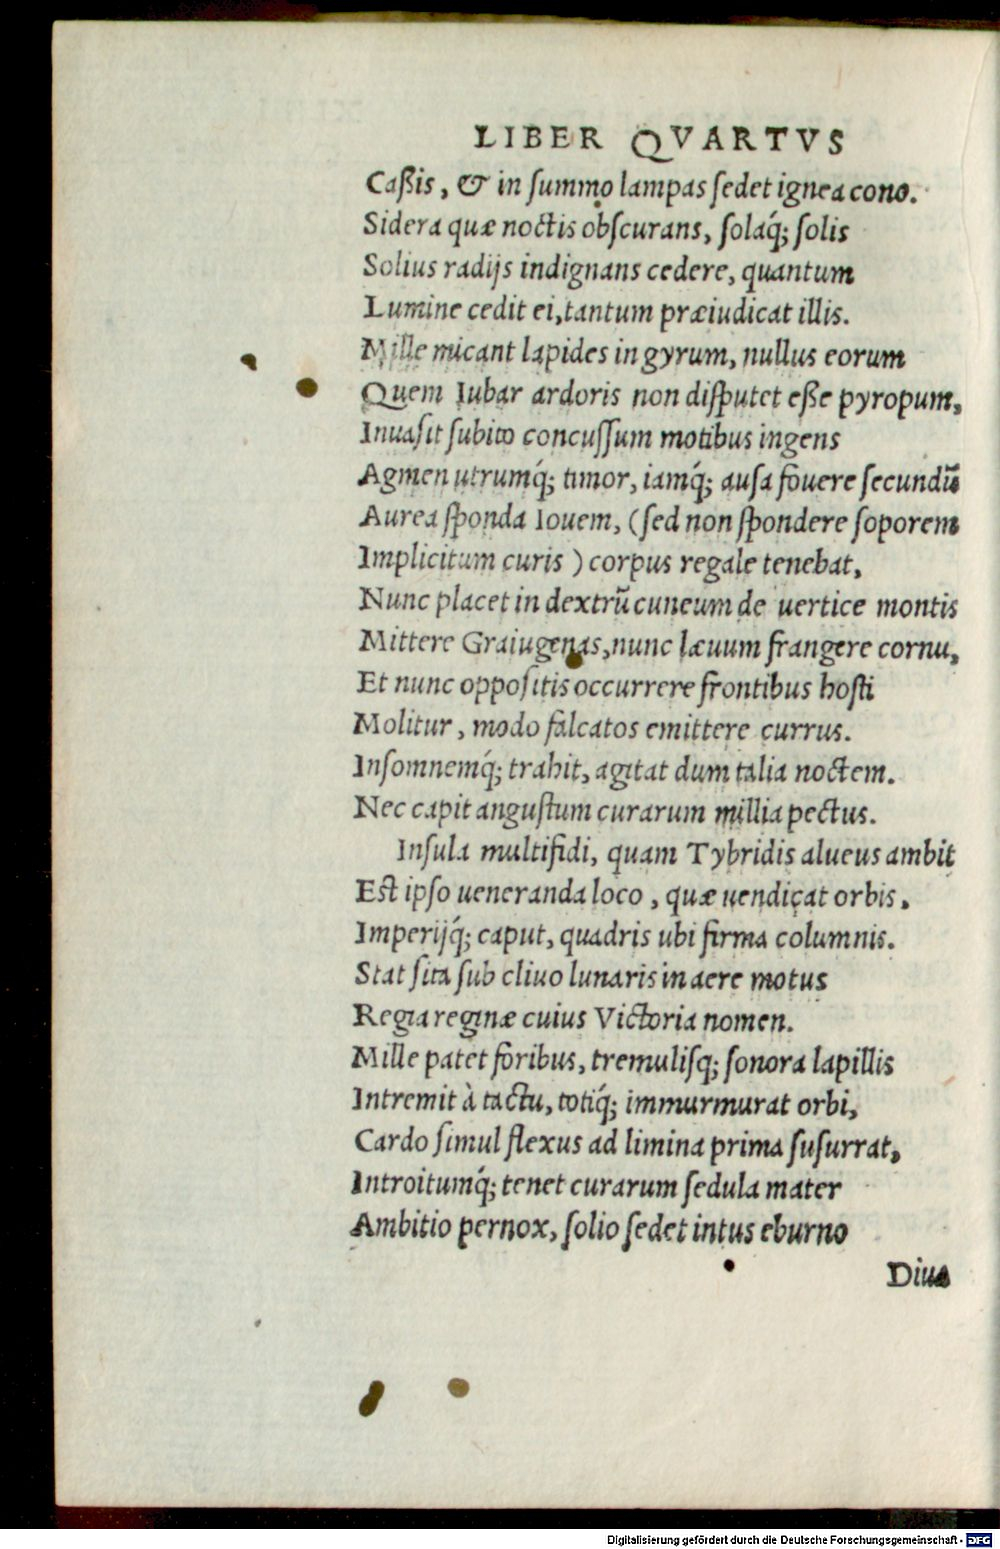 LIBER QVARTVS
Caßis, & in ſummo lampas ſedet ignea cono.
Sidera quæ noctis obſcurans, ſolaq́; ſolis
Solius radijs indignans cedere, quantum
Lumine cedit ei,tantum præiudicat illis.
Mille micant lapides in gyrum, nullus eorum
Quem Iubar ardoris non diſputet eße pyropum,
Inuaſit ſubito concuſſum motibus ingens
Agmen utrumq́; timor, iamq́; auſa fouere ſecundū
Aurea ſponda Iouem, (ſed non ſpondere ſoporem
Implicitum curis ) corpus regale tenebat,
Nunc placet in dextrū cuneum de uertice montis
Mittere Graiugenas,nunc læuum frangere cornu,
Et nunc oppoſitis occurrere frontibus hoſti
Molitur, modo falcatos emittere currus.
Inſomnemq́; trahit, agitat dum talia noctem.
Nec capit anguſtum curarum millia pectus.
Inſula multifidi, quam Tybridis alueus ambit
Eſt ipſo ueneranda loco, quæ uendicat orbis,
Imperijq́; caput, quadris ubi firma columnis.
Stat ſita ſub cliuo lunaris in aere motus
Regia reginæ cuius Victoria nomen.
Mille patet foribus, tremuliſq; ſonora lapillis
Intremit à tactu, totiq́; immurmurat orbi,
Cardo ſimul flexus ad limina prima ſuſurrat,
Introitumq́; tenet curarum ſedula mater
Ambitio pernox, ſolio ſedet intus eburno
Diua
Digitalisierung gefördert durch die Deutsche Forschungsgemeinschaft - DFG